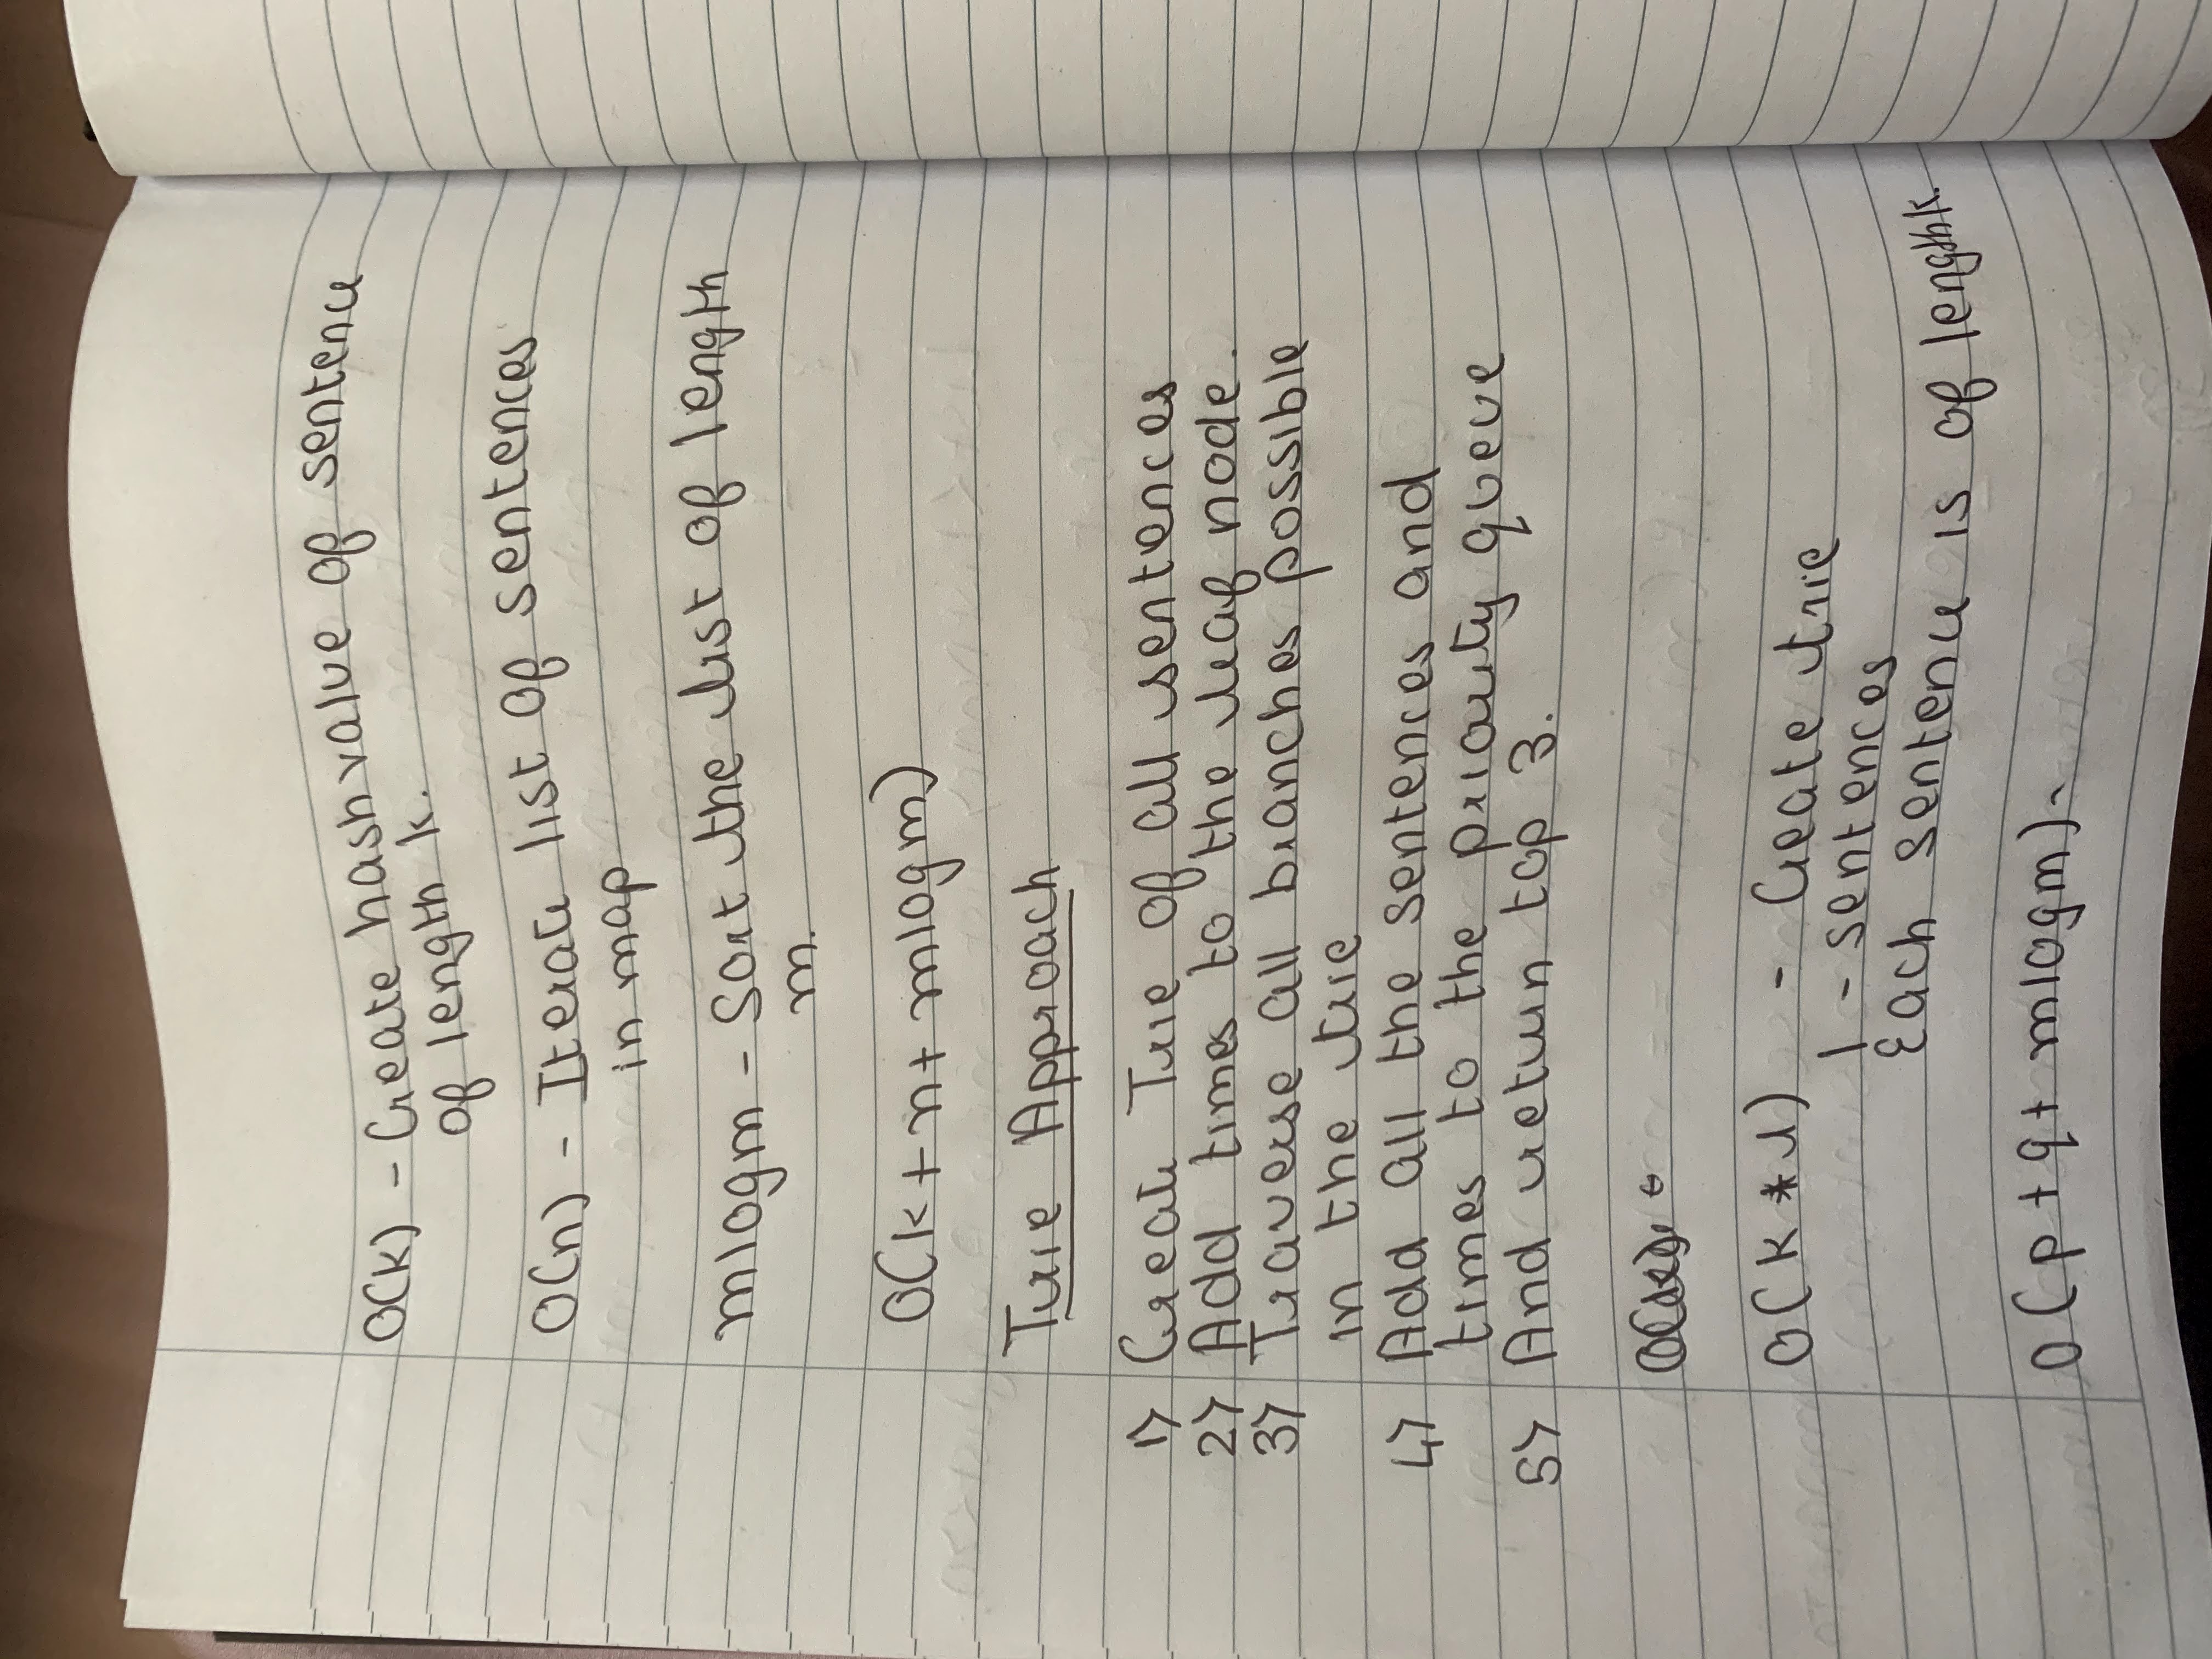 O(k) - Create hashvalue of sentence
of length k.
O(n) - Iterate list of sentences
in map
mlogm - Sort the list of length
m.
O(k+n+mlogm)
Trie Approach
1> Create Trie of all sentences
2> Add times to the leaf node.
3> Traverse all branches possible
in the trie
4> Add all the sentences and
times to the priority queue
5> And return top 3.
O(k*l) - Create trie
l - sentences
Each sentence is of length k.
O(p+q+mlogm)-